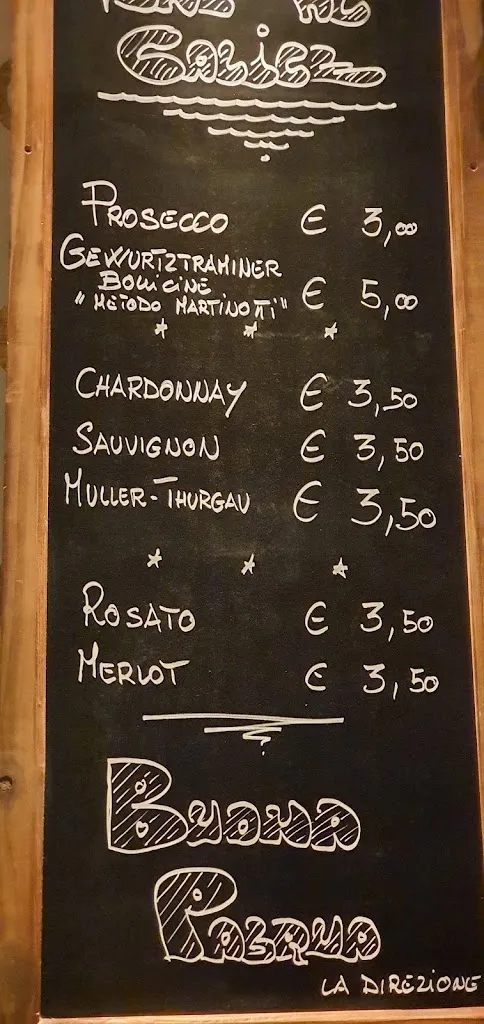 AL
Calice
PROSECCO € 3,00
GEWURTZTRAMINER
BOLLICINE
"METODO MARTINOTTI" € 5,00
CHARDONNAY € 3,50
SAUVIGNON € 3,50
MULLER-THURGAU € 3,50
ROSATO € 3,50
MERLOT € 3,50
BUONA
PASQUA
LA DIREZIONE